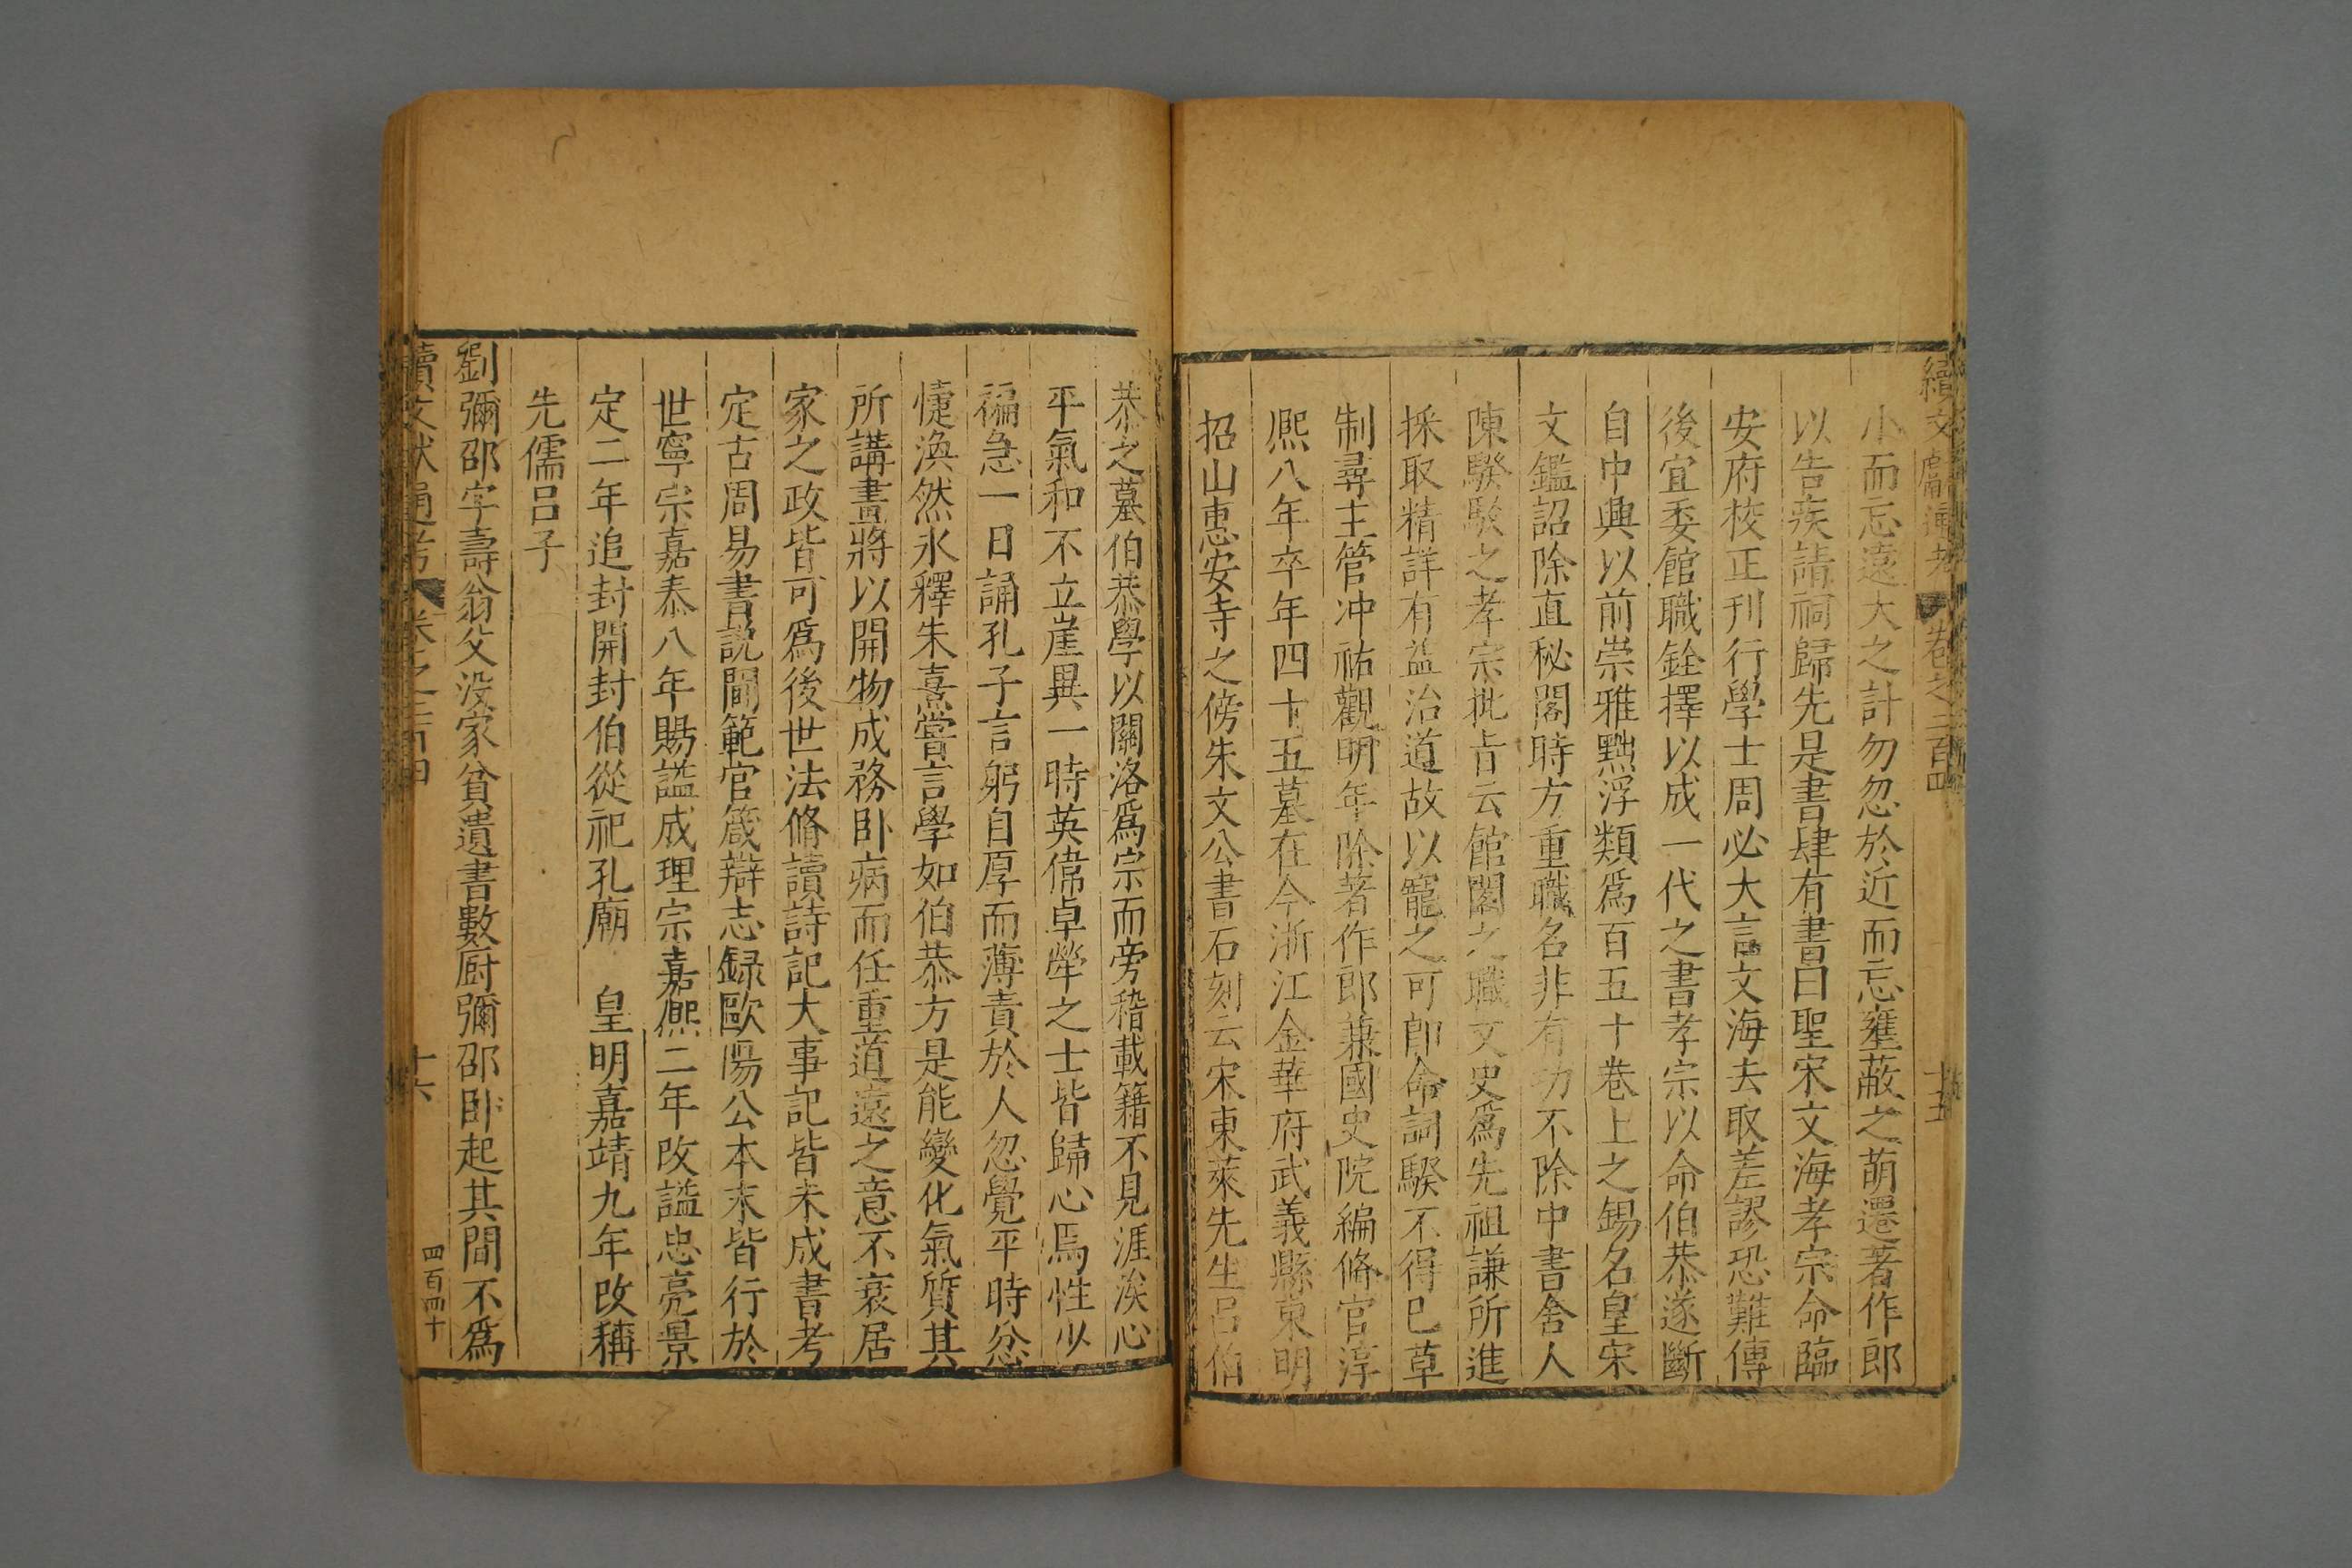 續文獻通考 卷之二百四 十五
小而忘遠大之計勿忽於近而忘壅蔽之萌遷著作郎
以告疾請祠歸先是書肆有書曰聖宋文海孝宗命臨
安府校正刊行學士周必大言文海去取差謬恐難傳
後宜委館職銓擇以成一代之書孝宗以命伯恭遂斷
自中興以前崇雅黜浮類爲百五十卷上之錫名皇宋
文鑑詔除直秘閣時方重職名非有功不除中書舍人
陳騤駁之孝宗批旨云館閣之職文史爲先祖謙所進
採取精詳有益治道故以寵之可卽命詞騤不得已草
制尋主管冲祐觀明年除著作郎兼國史院編脩官淳
熈八年卒年四十五墓在今浙江金華府武義縣東明
招山惠安寺之傍朱文公書石刻云宋東萊先生呂伯
恭之墓伯恭學以關洛爲宗而旁稽載籍不見涯涘心
平氣和不立崖異一時英偉卓犖之士皆歸心焉性少
褊急一日誦孔子言躬自厚而薄責於人忽覺平時忿
懥渙然氷釋朱熹嘗言學如伯恭方是能變化氣質其
所講畫將以開物成務卧病而任重道遠之意不衰居
家之政皆可爲後世法脩讀詩記大事記皆未成書考
定古周易書說閫範官箴辯志録歐陽公本末皆行於
世寧宗嘉泰八年賜謚成理宗嘉熈二年改謚忠亮景
定二年追封開封伯從祀孔廟 皇明嘉靖九年改稱
先儒呂子
劉彌邵字壽翁父没家貧遺書數厨彌邵卧起其間不爲
續文獻通考 卷之二百四 十六 四百四十